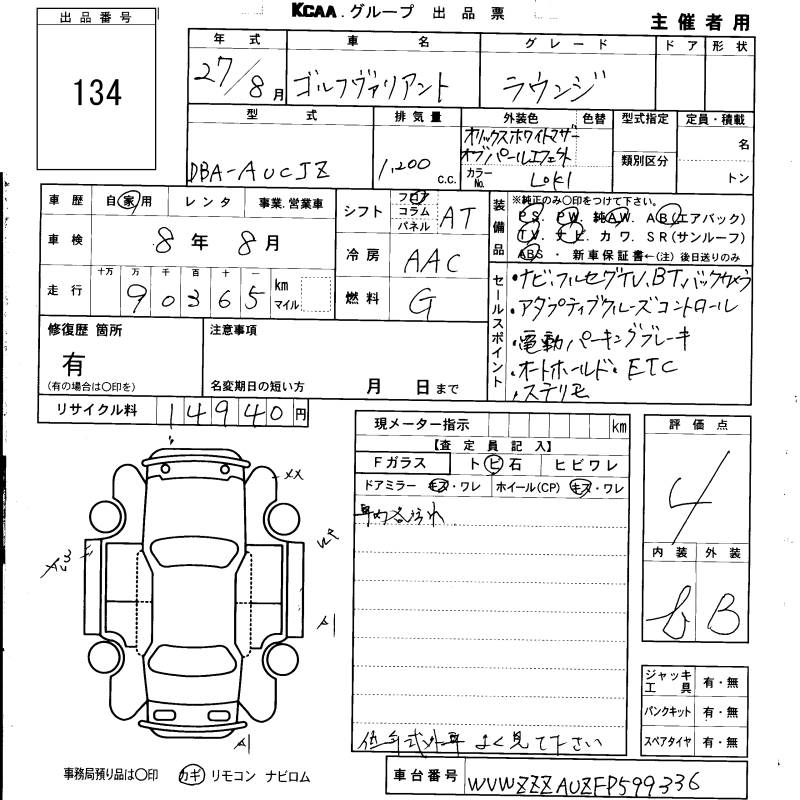 KCAA.グループ 出品票
主催者用
出品番号
134
年式 車名 グレード ドア 形状
27/8月 ゴルフヴァリアント ラウンジ
型式 排気量 外装色 色替 型式指定 定員・積載
オリックスホワイトマザー
オブパールエフェクト
名
類別区分
DBA-AUCJZ 1,200 c.c. カラーNo. LOK1 トン
車歴 自家用 レンタ 事業.営業車
シフト フロア コラム パネル AT
車検 8年8月
冷房 AAC
走行 十万 万 千 百 十 一
90365 km マイル
燃料 G
装備品 ※純正のみ○印をつけて下さい。
PS. PW. 純AW. AB(エアバック)
TV. ナビ. カワ. SR(サンルーフ)
ABS ・ 新車保証書←(注)後日送りのみ
セールスポイント
・ナビ,フルセグTV,BT,バックカメラ
・アダプティブクルーズコントロール
・電動パーキングブレーキ
・オートホールド・ETC
・ステリモ
修復歴 箇所
有
(有の場合は○印を)
注意事項
名変期日の短い方 月 日まで
リサイクル料 14940円
現メーター指示 km
【査定員記入】
Fガラス トビ石 ヒビワレ
ドアミラー キズ・ワレ ホイール(CP) キズ・ワレ
車内汚れ
位牛式外車 よく見て下さい
評価点
4
内装 外装
b B
ジャッキ工具 有・無
パンクキット 有・無
スペアタイヤ 有・無
XX
A1
A1
事務局預り品は○印 カギ リモコン ナビロム
車台番号 WVWZZZAUZFP599336